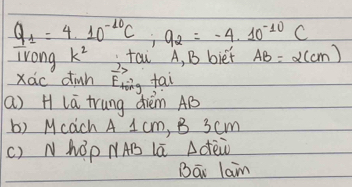 q₁ = 4. 10⁻¹⁰ C ; q₂ = -4. 10⁻¹⁰ C
Trong k² tại A, B biết AB = 2(cm)
xác định E⃗tổng tại
a) H là trung điểm AB
b) M cách A 1cm, B 3cm
c) N hợp NAB là Δđều
Bài làm